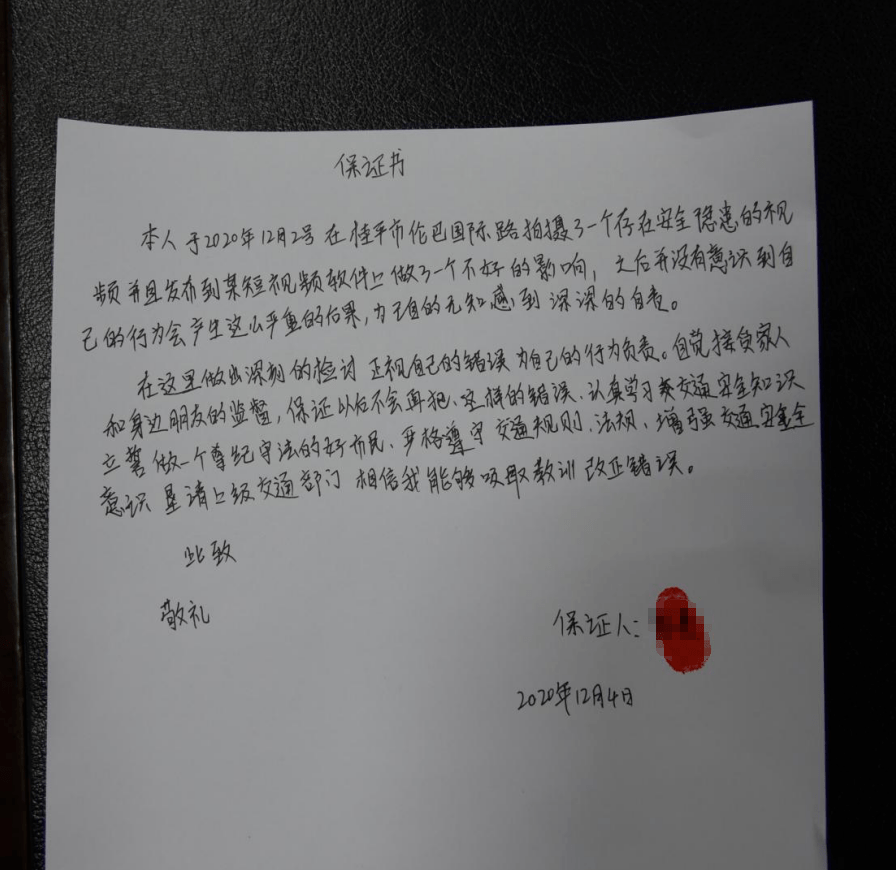 保证书
本人于2020年12月2号在桂平市伦巴国际路拍摄了一个存在安全隐患的视
频并且发布到某短视频软件上做了一个不好的影响,之后并没有意识到自
己的行为会产生这么严重的后果,为自的无知感到深深的自责。
在这里做出深刻的检讨 正视自己的错误 为自己的行为负责。自觉接负家人
和身边朋友的监督,保证以后不会再犯、这样的错误、认真学习交通安全知识
立誓做一个尊纪守法的好市民、严格遵守交通规则、法规、增强交通安全
意识 恳请上级交通部门 相信我能够吸取教训 改正错误。
此致
敬礼
保证人:
2020年12月4日